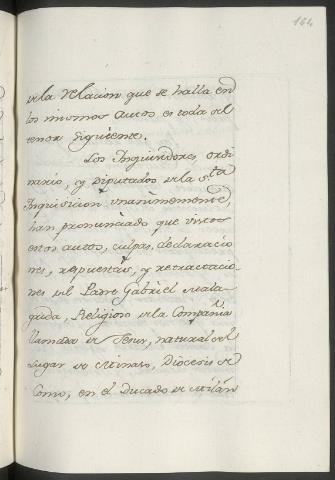 164
de la Relacion que se halla en
los mismos autos es toda del
tenor siguiente.
Los Inquisidores, ordi
nario, y Diputados de la Sta
Inquisicion unanimemente,
han pronunciado que vistos
estos autos, culpas, declaracio
nes, respuestas, y retractacio
nes del Padre Gabriel Mala-
grida, Religioso de la Compañia
llamada de Jesus, natural del
Lugar de Menaso, Diocesis de
Como, en el Ducado de Milán